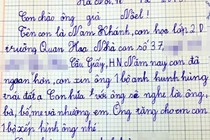 Con chào ông già Nôel!
Tên con là Nam Khánh, con học lớp 2D
trường Quan Hoa. Nhà con số 37
Cầu Giấy, H.N. Năm nay con đã
ngoan hơn, con xin ông 1 bộ anh hùng
trái đất ạ. Con hứa với ông sẽ nghe lời ông,
bà, bố, mẹ và nhường, em. Ông tặng cho em con
1 bộ xếp hình ông nhé